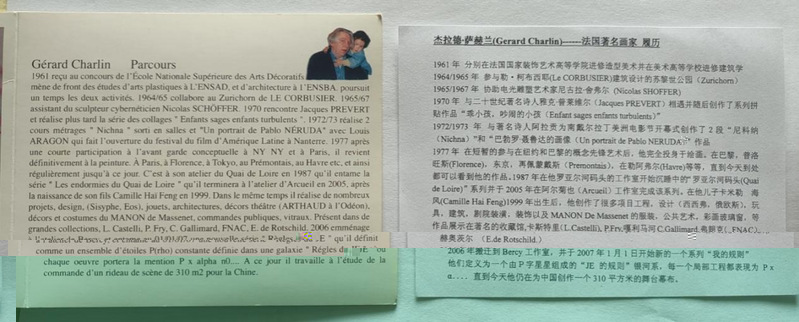 Gérard Charlin Parcours
1961 reçu au concours de l'École Nationale Supérieure des Arts Décoratifs
mène de front des études d'arts plastiques à L'ENSAD, et d'architecture à l'ENSBA. poursuit
un temps les deux activités. 1964/65 collabore au Zurichorn de LE CORBUSIER. 1965/67
assistant du sculpteur cybernéticien Nicolas SCHÖFFER. 1970 rencontre Jacques PREVERT
et réalise plus tard la série des collages " Enfants sages enfants turbulents ". 1972/73 réalise 2
cours métrages " Nichna " sorti en salles et "Un portrait de Pablo NÉRUDA" avec Louis
ARAGON qui fait l'ouverture du festival du film d'Amérique Latine à Nanterre. 1977 après
une courte participation à l'avant garde conceptuelle à NY NY et à Paris, il revient
définitivement à la peinture. À Paris, à Florence, à Tokyo, au Prémontais, au Havre etc, et ainsi
régulièrement jusqu'à ce jour. C'est à son atelier du Quai de Loire en 1987 qu'il entame la
série " Les endormies du Quai de Loire " qu'il terminera à l'atelier d'Arcueil en 2005, après
la naissance de son fils Camille Hai Feng en 1999. Dans le même temps il réalise de nombreux
projets, design, (Sisyphe, Eos), jouets, architectures, décors théâtre (ARTHAUD à l'Odéon),
décors et costumes du MANON de Massenet, commandes publiques, vitraux. Présent dans de
grandes collections, L. Castelli, P. Fry, C. Gallimard, FNAC, E. de Rotschild. 2006 emménage
qu'il définit
comme un ensemble d'étoiles P(rho) constante définie dans une galaxie " Règles du
chaque oeuvre portera la mention P x alpha n0.... A ce jour il travaille à l'étude de la
commande d'un rideau de scène de 310 m2 pour la Chine.
杰拉德·萨赫兰(Gerard Charlin)------法国著名画家 履历
1961 年 分别在法国国家装饰艺术高等学院进修造型美术并在美术高等学校进修建筑学
1964/1965 年 参与勒·柯布西耶(Le CORBUSIER)建筑设计的苏黎世公园（Zurichorn）
1965/1967 年 协助电光雕塑艺术家尼古拉·舍弗尔（Nicolas SHOFFER）
1970 年 与二十世纪著名诗人雅克·普莱维尔（Jacques PREVERT）相遇并随后创作了系列拼
贴作品 “乖小孩，吵闹的小孩（Enfant sages enfants turbulents）”
1972/1973 年 与著名诗人阿拉贡为南戴尔拉丁美洲电影节开幕式创作了 2 段 “尼科纳
（Nichna）”和 “巴勃罗·聂鲁达的画像（Un portrait de Pablo NERUDA）” 作品
1977 年 在短暂的参与在纽约和巴黎的概念先锋艺术后，他完全投身于绘画。在巴黎，普洛
旺斯(Florence)，东京，再佩蒙戴斯（Premontais），在勒阿弗尔(Havre)等等，直到今天到处
都可以看到他的作品。1987 年在他罗亚尔河码头的工作室开始沉睡中的“罗亚尔河码头(Quai
de Loire)” 系列并于 2005 年在阿尔菊仕（Arcueil）工作室完成该系列。在他儿子卡米勒 海
风(Camille Hai Feng)1999 年出生后，他创作了很多项目工程，设计（西西弗，俄欧斯），玩
具，建筑，剧院装潢，装饰以及 MANON De Massenet 的服装，公共艺术，彩画玻璃窗，等
作品展示在著名的收藏馆,卡斯特里(L.Castelli), P.Fry,嘎利马河 C.Gallimard,
赫奥茨尔 （E.de Rotschild.）
2006 年搬迁到 Bercy 工作室，并于 2007 年 1 月 1 日开始新的一个系列 “我的规则”
他们定义为一个由 P 字星星组成的 “JE 的规则” 银河系，每一个局部工程都表现为 P x
α.... 直到今天他仍在为中国创作一个 310 平方米的舞台幕布。